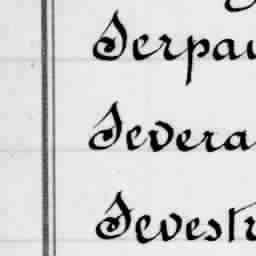 Serpau
Severa
Sevestr